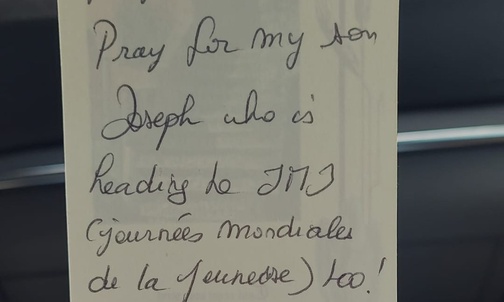 Pray for my son
Joseph who is
heading to JMJ
(journées mondiales
de la jeunesse) too!